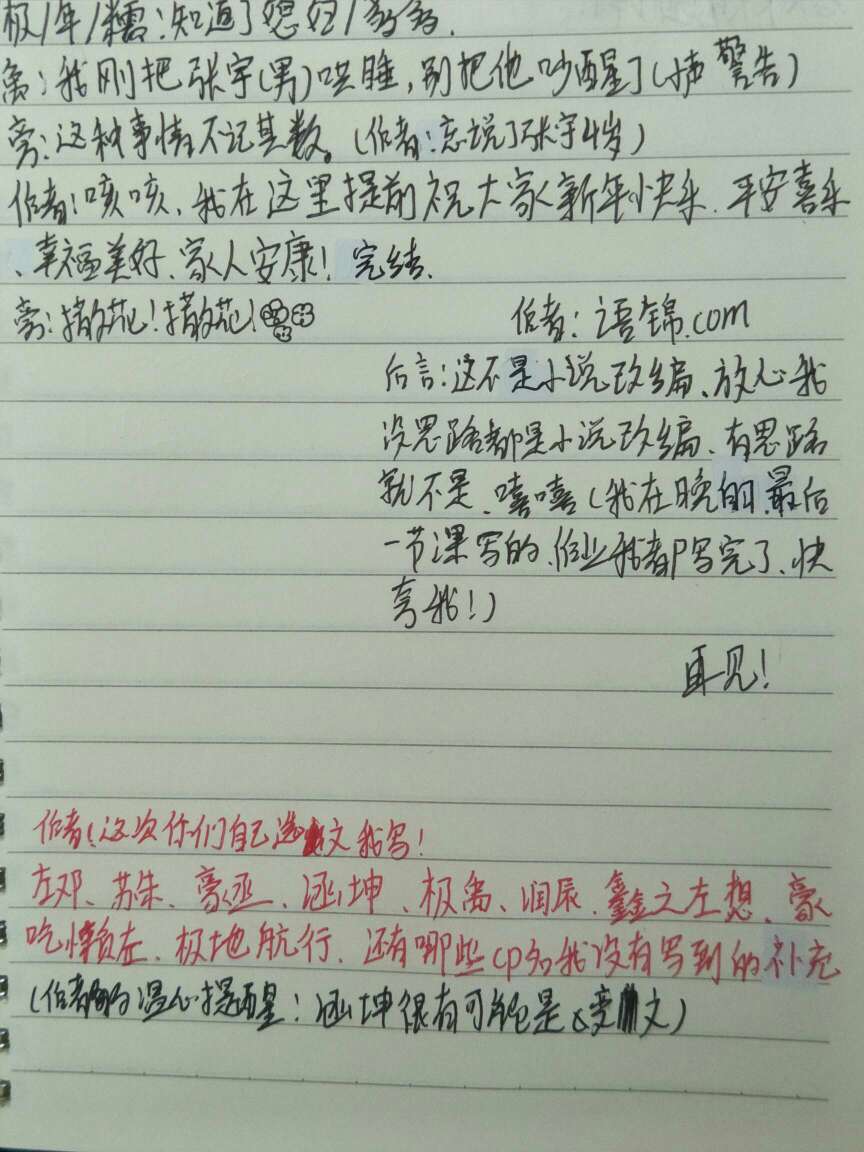 极/年/糯:知道了媳妇/爹爹.
离:我刚把张宇(男)哄睡,别把他吵醒了(小声警告)
旁:这种事情不记其数。(作者:忘说了张宇4岁)
作者:咳咳、我在这里提前祝大家新年快乐.平安喜乐
、幸福美好、家人安康!完结.
旁:撒花!撒花!
作者:语锦.com
后言:这不是小说改编、放心我
没思路都是小说改编、有思路
就不是.嘻嘻(我在晚自习最后
一节课写的、作业我都写完了、快
夸我!)
再见!
作者:这次你们自己选文我写!
左邓、苏朱、豪丞、涵坤、极禹、润辰、鑫之左想、豪
吃懒左、极地航行、还有哪些cp名我没有写到的补充
(作者的温心提醒:涵坤很有可能是be文)